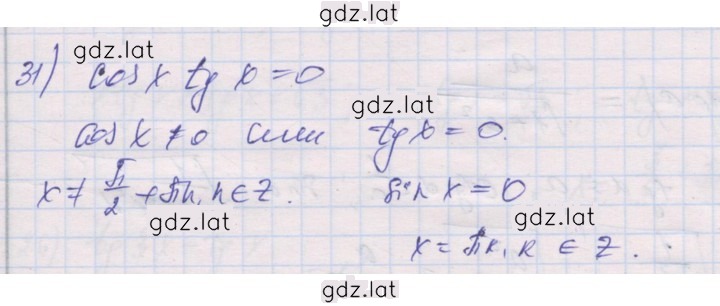 gdz.lat
gdz.lat
31) cos x tg x = 0
gdz.lat
cos x ≠ 0 или tg x = 0.
x ≠ π/2 + πn, n ∈ Z. sin x = 0
gdz.lat
gdz.lat
x = πk, k ∈ Z.
gdz.lat